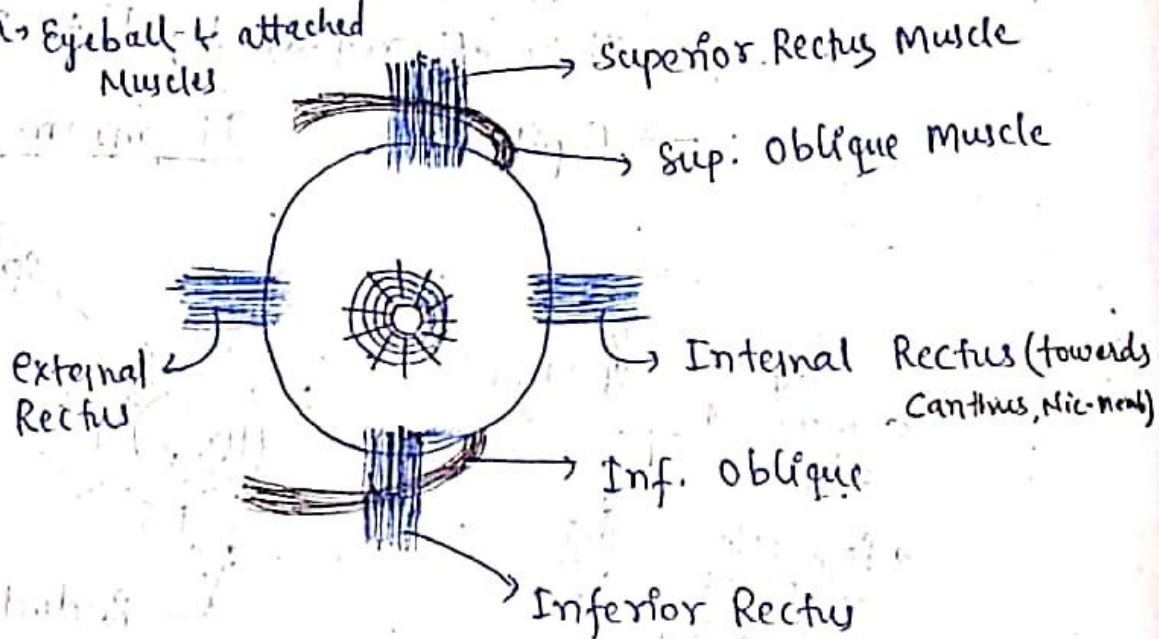 Eyeball & attached
Muscles
Superior Rectus Muscle
Sup. Oblique Muscle
external
Rectus
Internal Rectus (towards
Canthus, Nic-memb)
Inf. Oblique
Inferior Rectus